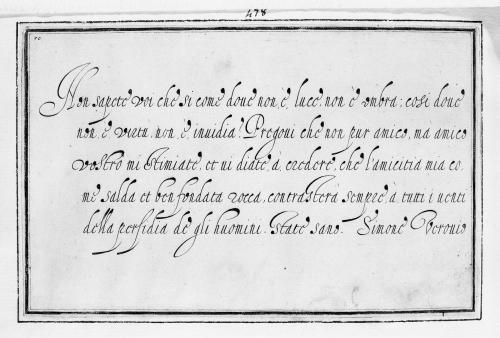 478
Non sapete voi che si come doue non, è, luce, non è ombra: cosi doue
non, è, virtù, non, è, inuidia? Pregoui che non pur amico, ma amico
vostro mi stimiate, et ui diate, à, credere, che l'amicitia mia co,
me salda et ben fondata rocca, contrasterà sempre, à, tutti i uenti
della perfidia de gli huomini. state sano. Simone Verouio